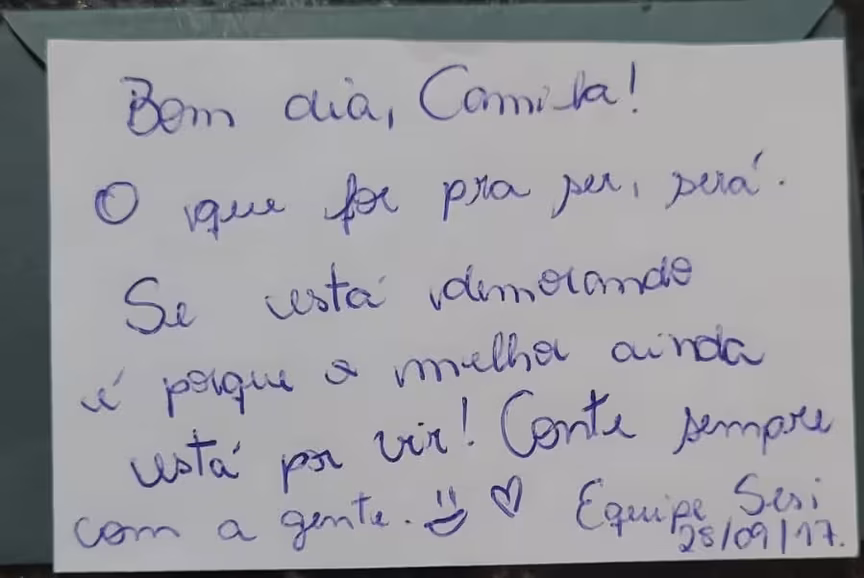 Bom dia, Camila!
O que for pra ser, será.
Se está demorando
é porque o melhor ainda
está por vir! Conte sempre
com a gente. Equipe Sesi
28/09/17.